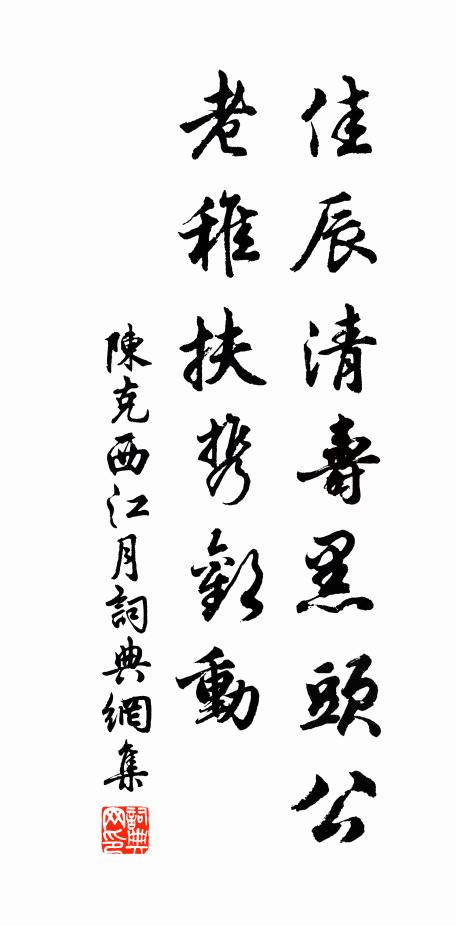 佳辰清壽黑頭公
老稚扶携歡動
陳克西江月詞典網集
詞典網印